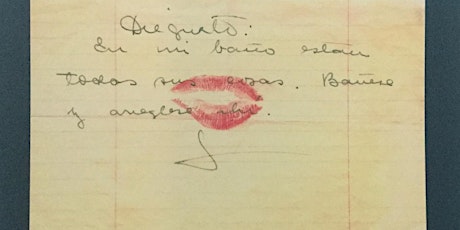 Dieguito:
En mi baño estan
todas sus cosas. Bañese
y arreglese ahi.